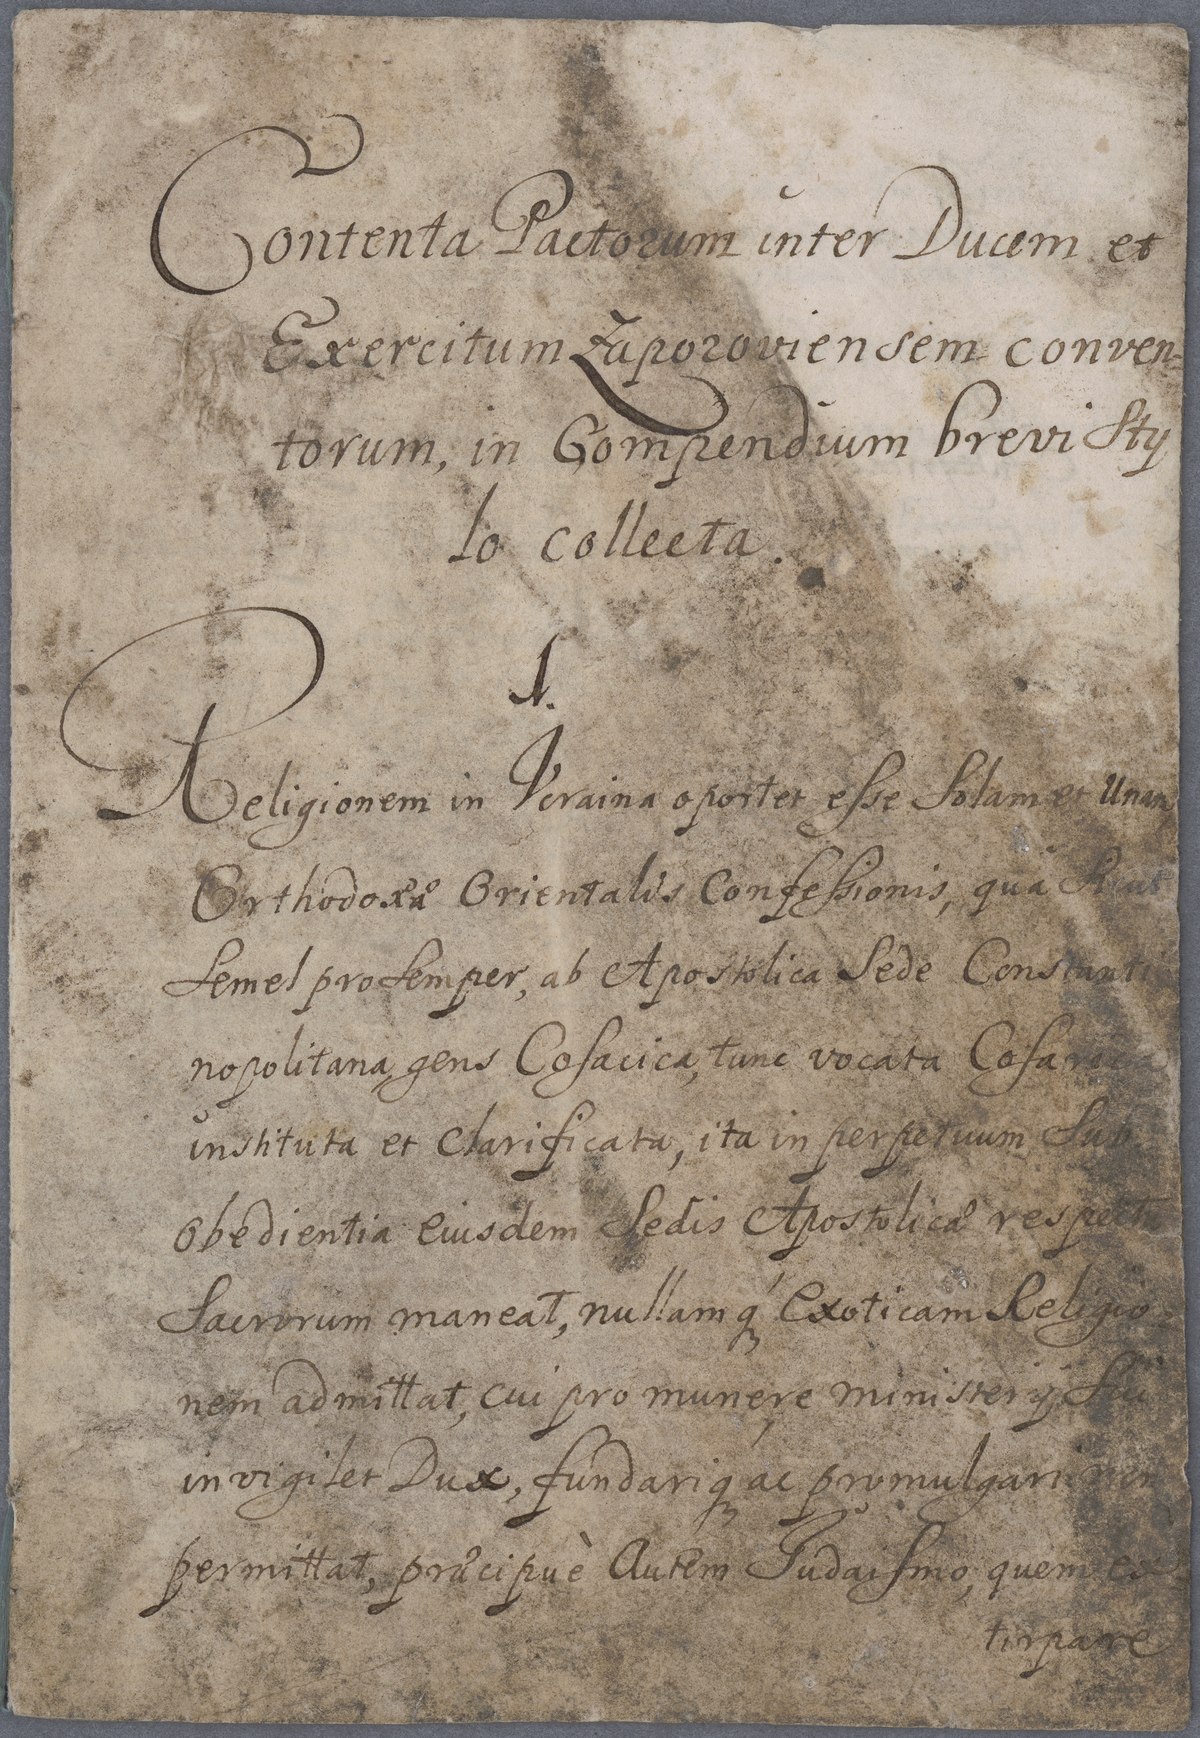 Contenta Pactorum inter Ducem et
Exercitum Zaporoviensem conven-
torum, in Compendium brevi Sty
lo collecta.
1.
Religionem in Vcraina oportet esse Solam et Unam,
Orthodoxæ Orientalis Confessionis, qua Sicut
Semel pro Semper, ab Apostolica Sede Constanti
nopolitana, gens Cosacica, tunc vocata
instituta et Clarificata, ita in perpetuum Sub
obedientia eiusdem Sedis Apostolicæ respectu
Sacrorum maneat, nullamq́ exoticam Religio-
nem admittat, cui pro munere ministerij Sui
invigilet Dux, fundariq ac promulgari non
permittat, præcipuè Autem Judaismo, quem ex
tirpare